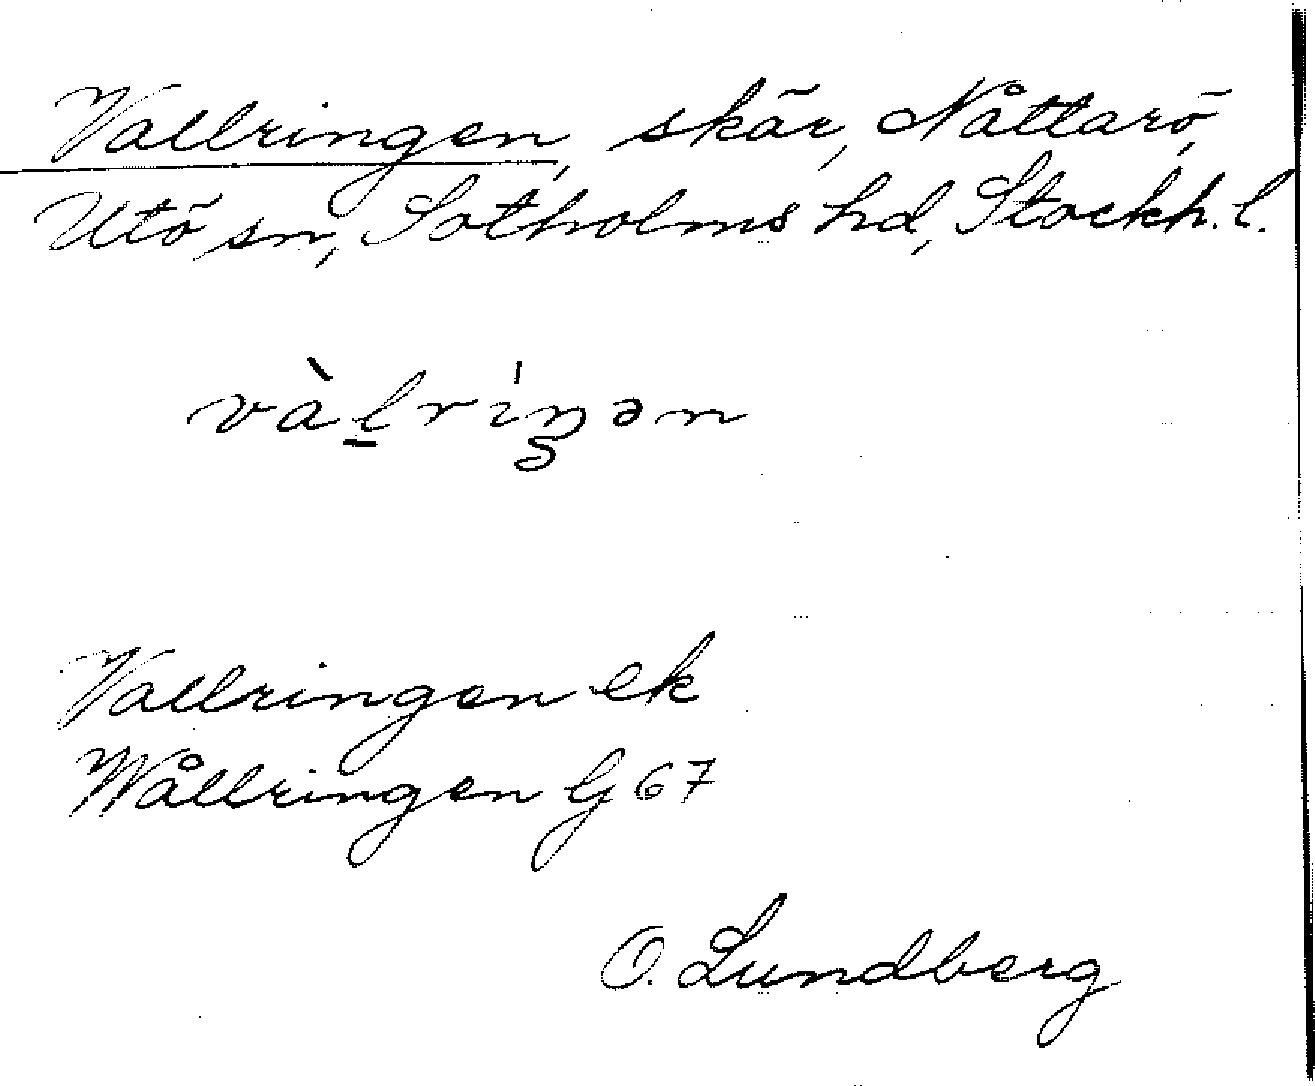 Vallringen, skär, Nåttarö,
Utö sn, Sotholms hd, Stockh. l.
vàl̲ríŋən
Vallringen ek
Wållringen G 67
O. Lundberg